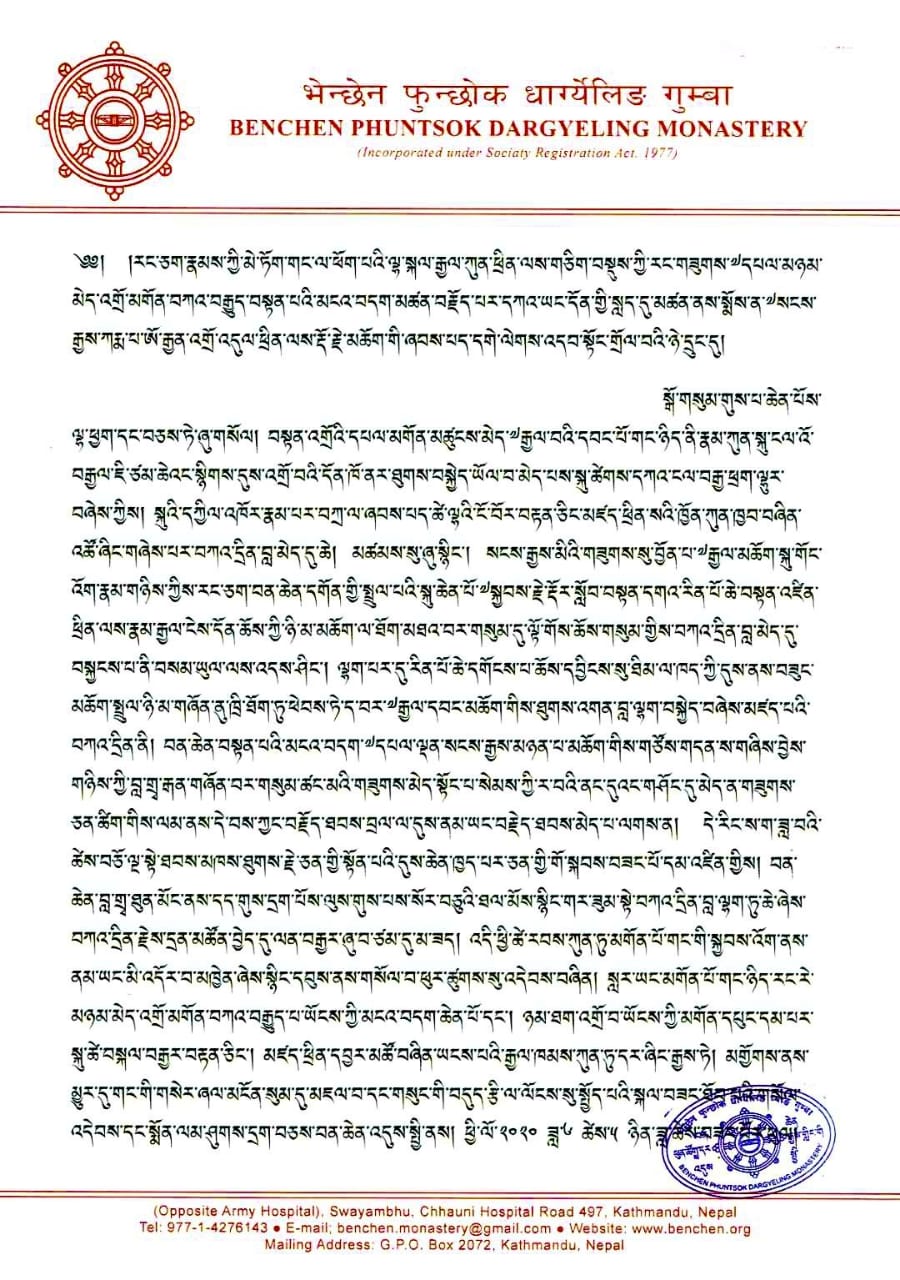 भेन्छेन फुन्छोक धार्ग्येलिङ गुम्बा
BENCHEN PHUNTSOK DARGYELING MONASTERY
(Incorporated under Sociaty Registration Act. 1977)
༄༅། །རང་ཅག་རྣམས་ཀྱི་མེ་ཏོག་གང་ལ་ཕོག་པའི་ལྷ་སྐལ་རྒྱལ་ཀུན་ཕྲིན་ལས་གཅིག་བསྡུས་ཀྱི་རང་གཟུགས་༧དཔལ་མཉམ་
མེད་འགྲོ་མགོན་བཀའ་བརྒྱུད་བསྟན་པའི་མངའ་བདག་མཚན་བརྗོད་པར་དཀའ་ཡང་དོན་གྱི་སླད་དུ་མཚན་ནས་སྨོས་ན་༧སངས་
རྒྱས་ཀརྨ་པ་ཨོ་རྒྱན་འགྲོ་འདུལ་ཕྲིན་ལས་རྡོ་རྗེ་མཆོག་གི་ཞབས་པད་དགེ་ལེགས་འདབ་སྟོང་གྲོལ་བའི་ཉེ་དྲུང་དུ།
སྒོ་གསུམ་གུས་པ་ཆེན་པོས་
ལྷ་ཕྱག་དང་བཅས་ཏེ་ཞུ་གསོལ། བསྟན་འགྲོའི་དཔལ་མགོན་མཚུངས་མེད་༧རྒྱལ་བའི་དབང་པོ་གང་ཉིད་ནི་རྣམ་ཀུན་སྐུ་ངལ་འོ་
བརྒྱལ་ཇི་ཙམ་ཆེའང་སྙིགས་དུས་འགྲོ་བའི་དོན་ཁོ་ནར་ཐུགས་བསྐྱེད་ཡོལ་བ་མེད་པས་སྐུ་ཚེགས་དཀའ་ངལ་བརྒྱ་ཕྲག་ལྷུར་
བཞེས་ཀྱིས། སྐུའི་དཀྱིལ་འཁོར་རྣམ་པར་བཀྲ་ལ་ཞབས་པད་ཚེ་ལྷའི་ངོ་བོར་བརྟན་ཅིང་མཛད་ཕྲིན་སའི་ཁྱོན་ཀུན་ཁྱབ་བཞིན་
འཚོ་ཞིང་གཞེས་པར་བཀའ་དྲིན་བླ་མེད་དུ་ཆེ། མཚམས་སུ་ཞུ་སྙིང་། སངས་རྒྱས་མིའི་གཟུགས་སུ་བྱོན་པ་༧རྒྱལ་མཆོག་སྐུ་གོང་
འོག་རྣམ་གཉིས་ཀྱིས་རང་ཅག་བན་ཆེན་དགོན་གྱི་སྤྲུལ་པའི་སྐུ་ཆེན་པོ་༧སྐྱབས་རྗེ་རྡོར་སློབ་བསྟན་དགའ་རིན་པོ་ཆེ་བསྟན་འཛིན་
ཕྲིན་ལས་རྣམ་རྒྱལ་ངེས་དོན་ཆོས་ཀྱི་ཉི་མ་མཆོག་ལ་ཐོག་མཐའ་བར་གསུམ་དུ་ལྟོ་གོས་ཆོས་གསུམ་གྱིས་བཀའ་དྲིན་བླ་མེད་དུ་
བསྐྱངས་པ་ནི་བསམ་ཡུལ་ལས་འདས་ཤིང་། ལྷག་པར་དུ་རིན་པོ་ཆེ་དགོངས་པ་ཆོས་དབྱིངས་སུ་ཐིམ་ལ་ཁད་ཀྱི་དུས་ནས་བཟུང་
མཆོག་སྤྲུལ་ཉི་མ་གཞོན་ནུ་ཁྲི་ཐོག་ཏུ་ཕེབས་ཏེ་ད་བར་༧རྒྱལ་དབང་མཆོག་གིས་ཐུགས་འགན་བླ་ལྷག་བསྐྱེད་བཞེས་མཛད་པའི་
བཀའ་དྲིན་ནི། བན་ཆེན་བསྟན་པའི་མངའ་བདག་༧དཔལ་ལྡན་སངས་རྒྱས་མཉན་པ་མཆོག་གིས་གཙོས་གདན་ས་གཞིས་བྱེས་
གཉིས་ཀྱི་བླ་གྲྭ་རྒན་གཞོན་བར་གསུམ་ཚང་མའི་གཟུགས་མེད་སྟོང་པ་སེམས་ཀྱི་ར་བའི་ནང་དུའང་གཤོང་དུ་མེད་ན་གཟུགས་
ཅན་ཚིག་གིས་ལམ་ནས་དེ་བས་ཀྱང་བརྗོད་ཐབས་བྲལ་ལ་དུས་ནམ་ཡང་བརྗེད་ཐབས་མེད་པ་ལགས་ན། དེ་རིང་ས་ག་ཟླ་བའི་
ཚེས་བཅོ་ལྔ་སྟེ་ཐབས་མཁས་ཐུགས་རྗེ་ཅན་གྱི་སྟོན་པའི་དུས་ཆེན་ཁྱད་པར་ཅན་གྱི་གོ་སྐབས་བཟང་པོ་དམ་འཛིན་གྱིས། བན་
ཆེན་བླ་གྲྭ་ཐུན་མོང་ནས་དད་གུས་དྲག་པོས་ལུས་གུས་པས་སོར་བཅུའི་ཐལ་མོས་སྙིང་གར་ཟུམ་སྟེ་བཀའ་དྲིན་བླ་ལྷག་ཏུ་ཆེ་ཞེས་
བཀའ་དྲིན་རྗེས་དྲན་མཚོན་བྱེད་དུ་ལན་བརྒྱར་ཞུ་བ་ཙམ་དུ་མ་ཟད། འདི་ཕྱི་ཚེ་རབས་ཀུན་ཏུ་མགོན་པོ་གང་གི་སྐྱབས་འོག་ནས་
ནམ་ཡང་མི་འདོར་བ་མཁྱེན་ཞེས་སྙིང་དབུས་ནས་གསོལ་བ་ཕུར་ཚུགས་སུ་འདེབས་བཞིན། སླར་ཡང་མགོན་པོ་གང་ཉིད་རང་རེ་
མཉམ་མེད་འགྲོ་མགོན་བཀའ་བརྒྱུད་པ་ཡོངས་ཀྱི་མངའ་བདག་ཆེན་པོ་དང་། ཉམ་ཐག་འགྲོ་བ་ཡོངས་ཀྱི་མགོན་དཔུང་དམ་པར་
སྐུ་ཚེ་བསྐལ་བརྒྱར་བརྟན་ཅིང་། མཛད་ཕྲིན་དབྱར་མཚོ་བཞིན་ཡངས་པའི་རྒྱལ་ཁམས་ཀུན་ཏུ་དར་ཞིང་རྒྱས་ཏེ། མགྱོགས་ནས་
མྱུར་དུ་གང་གི་གསེར་ཞལ་མངོན་སུམ་དུ་མཇལ་བ་དང་གསུང་གི་བདུད་རྩི་ལ་ལོངས་སུ་སྤྱོད་པའི་སྐལ་བཟང་ཐོབ་པའི་གསོལ་
འདེབས་དང་སྨོན་ལམ་ཤུགས་དྲག་བཅས་བན་ཆེན་འདུས་སྤྱི་ནས། ཕྱི་ལོ་༢༠༢༠ ཟླ་༦ ཚེས་༥ ཉིན་
BENCHEN PHUNTSOK DARGYELING MONASTERY
(Opposite Army Hospital), Swayambhu, Chhauni Hospital Road 497, Kathmandu, Nepal
Tel: 977-1-4276143 ● E-mail; benchen.monastery@gmail.com ● Website: www.benchen.org
Mailing Address: G.P.O. Box 2072, Kathmandu, Nepal